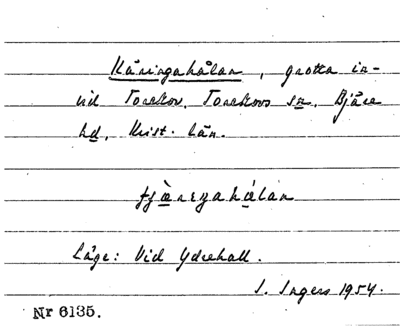 Käringahålan, grotta in-
vid Torekov. Torekovs sn. Bjäre
hd, Krist. län.
Läge: Vid Ydrehall.
I. Ingers 1954.
Nr 6135.